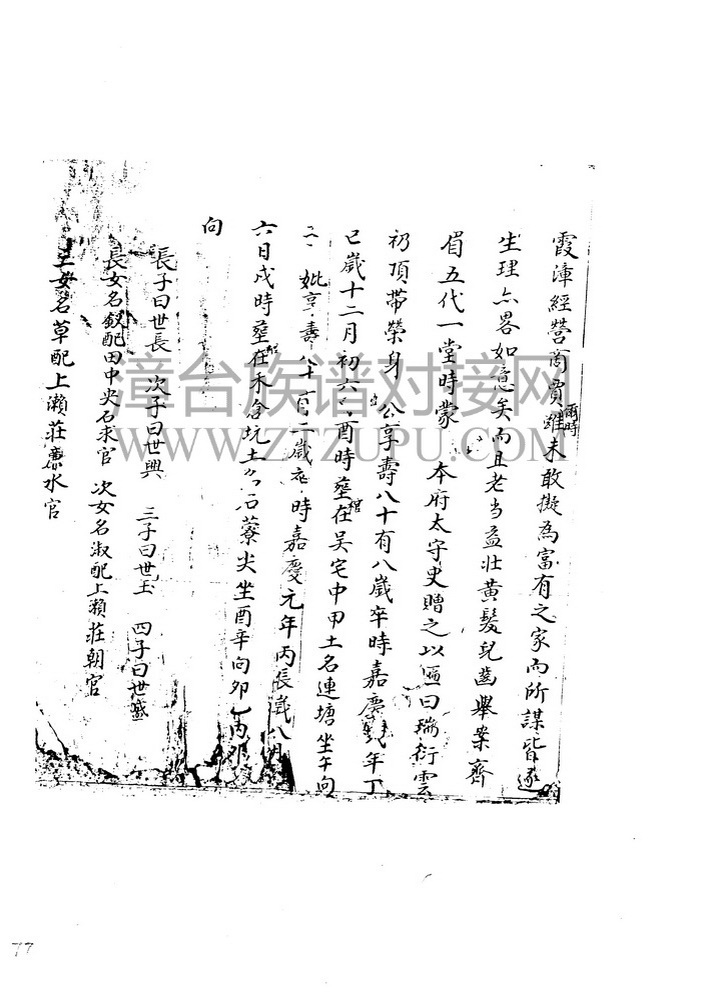 霞漳經營商賈雖爾時未敢擬為富有之家而所謀皆逐
生理亦畧如意矣而且老當益壯黃髮兒齒舉案齊
眉五代一堂時蒙 本府太守史贈之以匾曰瑞衍雲
礽頂帶榮身 公享壽八十有八歲卒時嘉慶 年丁
巳歲十二月初六 酉時塟在吳宅中甲土名連塘坐午向
妣享壽八十有二歲 時嘉慶元年丙辰歲八月
六日戌時塟在禾倉坑土名石藔尖坐酉辛向卯乙丙
向
長子曰世長 次子曰世興 三子曰世玉 四子曰世盛
長女名釵配田中央石求官 次女名淑配上瀨莊朝官
三女名草配上瀨莊 水官
漳台族谱对接网
WWW.ZTZUPU.COM
77